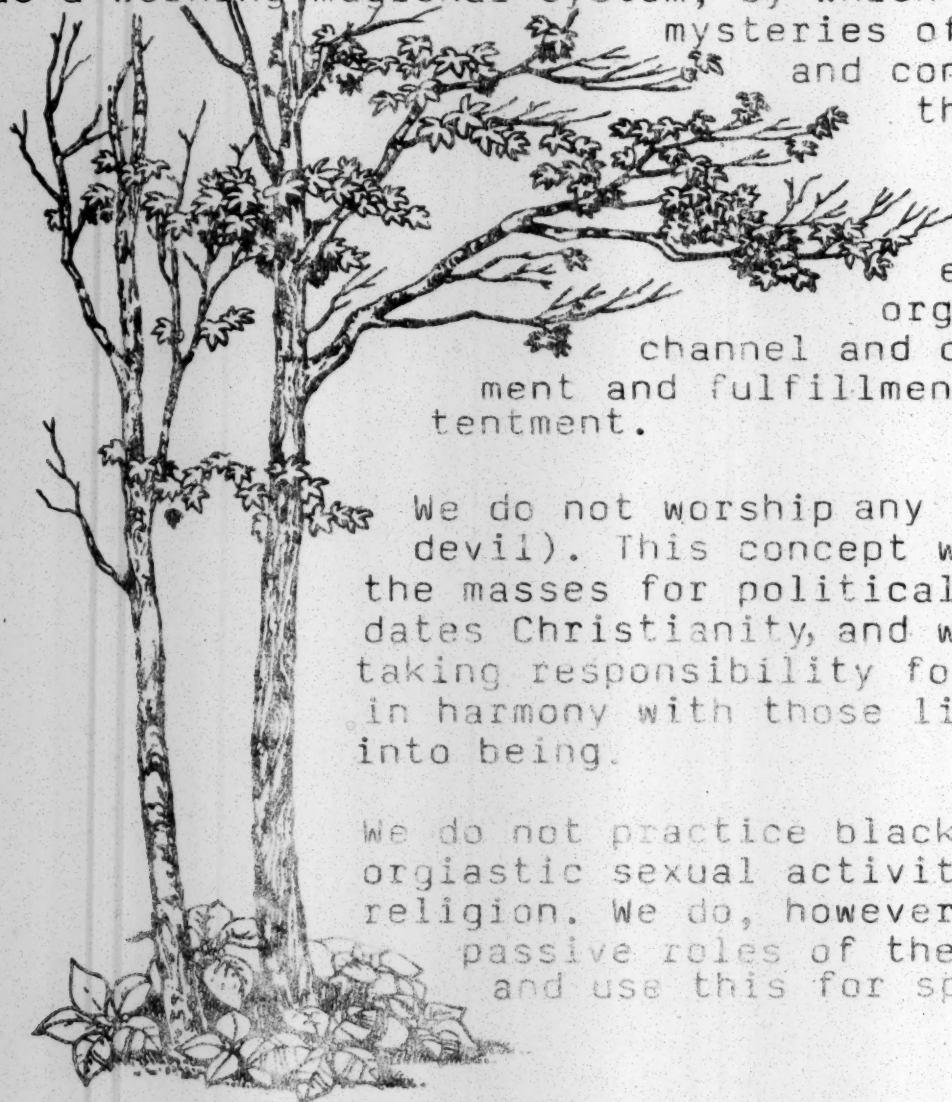 working magickal system, by which
mysteries of
and con
th
e
org
channel and c
ment and fulfillmen
tentment.
We do not worship any
devil). This concept w
the masses for political
dates Christianity, and w
taking responsibility fo
in harmony with those li
into being.
We do not practice black
orgiastic sexual activit
religion. We do, however
passive roles of the
and use this for sp